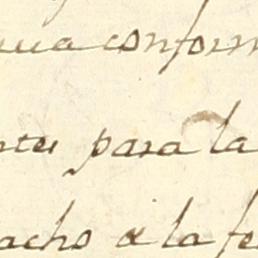 conform
para la
acho a la fe